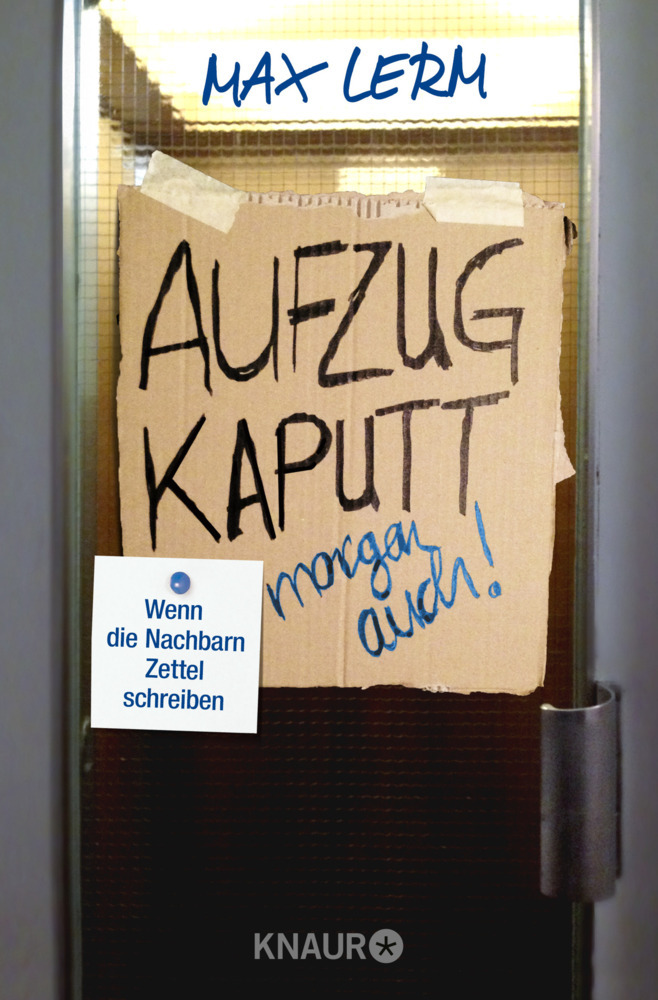 MAX LERM
AUFZUG
KAPUTT
morgen
auch!
Wenn
die Nachbarn
Zettel
schreiben
KNAUR